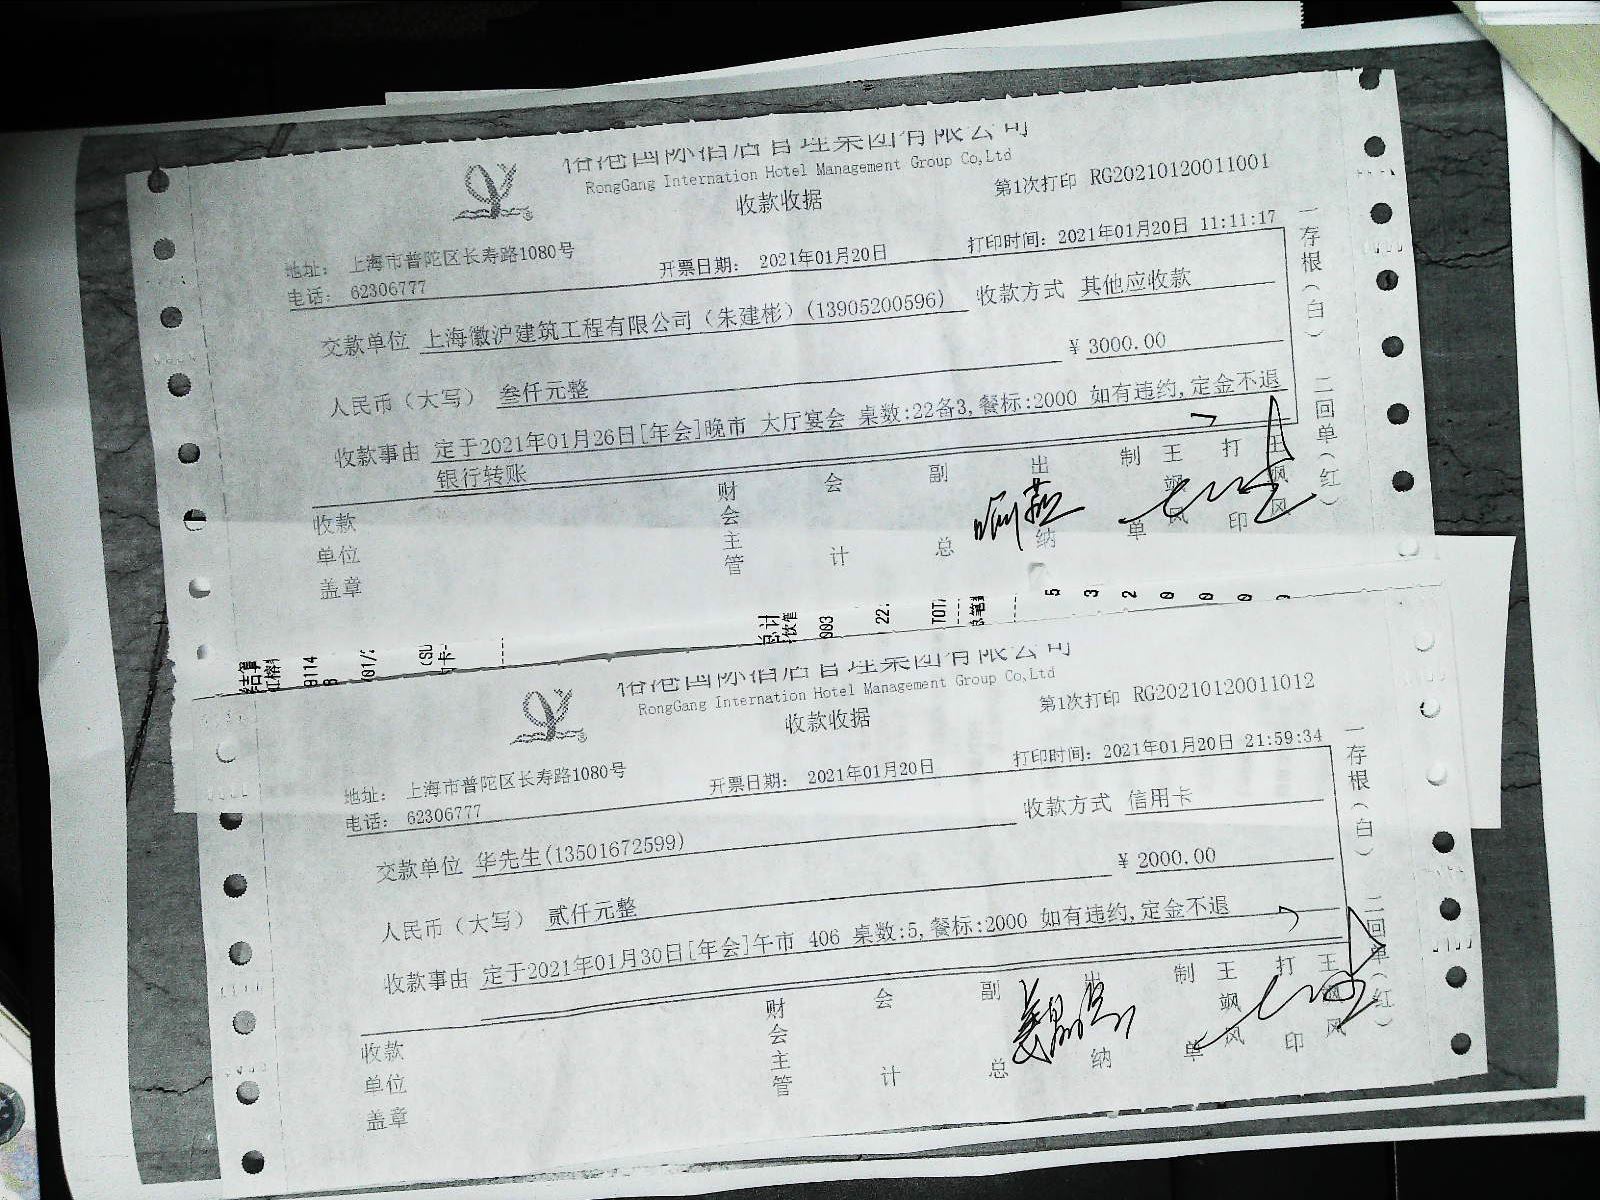 国际酒店管理集团有限公司
RongGang Internation Hotel Management Group Co,Ltd
收款收据
第1次打印 RG20210120011001
地址： 上海市普陀区长寿路1080号
电话： 62306777
开票日期： 2021年01月20日
打印时间：2021年01月20日 11:11:17
交款单位 上海徽沪建筑工程有限公司（朱建彬）(13905200596) 收款方式 其他应收款
人民币（大写） 叁仟元整 ¥ 3000.00
收款事由 定于2021年01月26日[年会]晚市 大厅宴会 桌数:22备3,餐标:2000 如有违约,定金不退
银行转账
收款单位盖章
财会主管
会计
副总
出纳
制单
王飒风
打印
王飒风
一存根（白） 二回单（红）
总计
003
22.
TOT
5 3 2 0 0 0
9114
8
(SU
卡-
国际酒店管理集团有限公司
RongGang Internation Hotel Management Group Co,Ltd
收款收据
第1次打印 RG20210120011012
地址： 上海市普陀区长寿路1080号
电话： 62306777
开票日期： 2021年01月20日
打印时间：2021年01月20日 21:59:34
交款单位 华先生(13501672599) 收款方式 信用卡
人民币（大写） 贰仟元整 ¥ 2000.00
收款事由 定于2021年01月30日[年会]午市 406 桌数:5,餐标:2000 如有违约,定金不退
收款单位盖章
财会主管
会计
副总
出纳
制单
王飒风
打印
王飒风
一存根（白） 二回单（红）